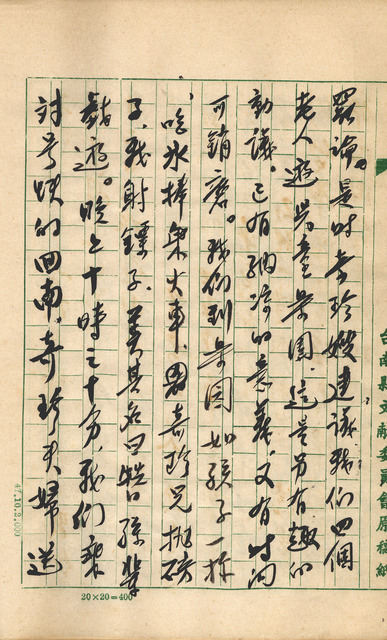 罷論。是時李珍嫂建議我們四個
老人遊兒童樂園。這是另有趣的
動議。已有納凉的意義，又有時間
可銷磨。我們到樂園如孩子一樣
吃冰棒乘火車。因奇珍兄拋磅
子、我射鏢子、美其名曰牲口孫輩
遊。晚上十時三十分，我們乘
對号快的回南。奇珍夫婦送
台南縣文獻委員會原稿紙
47.10.2,000
20×20=400